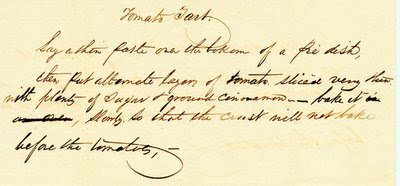 Tomato Tart.
Lay a thin paste over the bottom of a pie dish,
then put alternate layers of tomato sliced very thin
with plenty of sugar & ground cinnamon — bake it in
an oven, slowly so that the crust will not bake
before the tomatoes, —